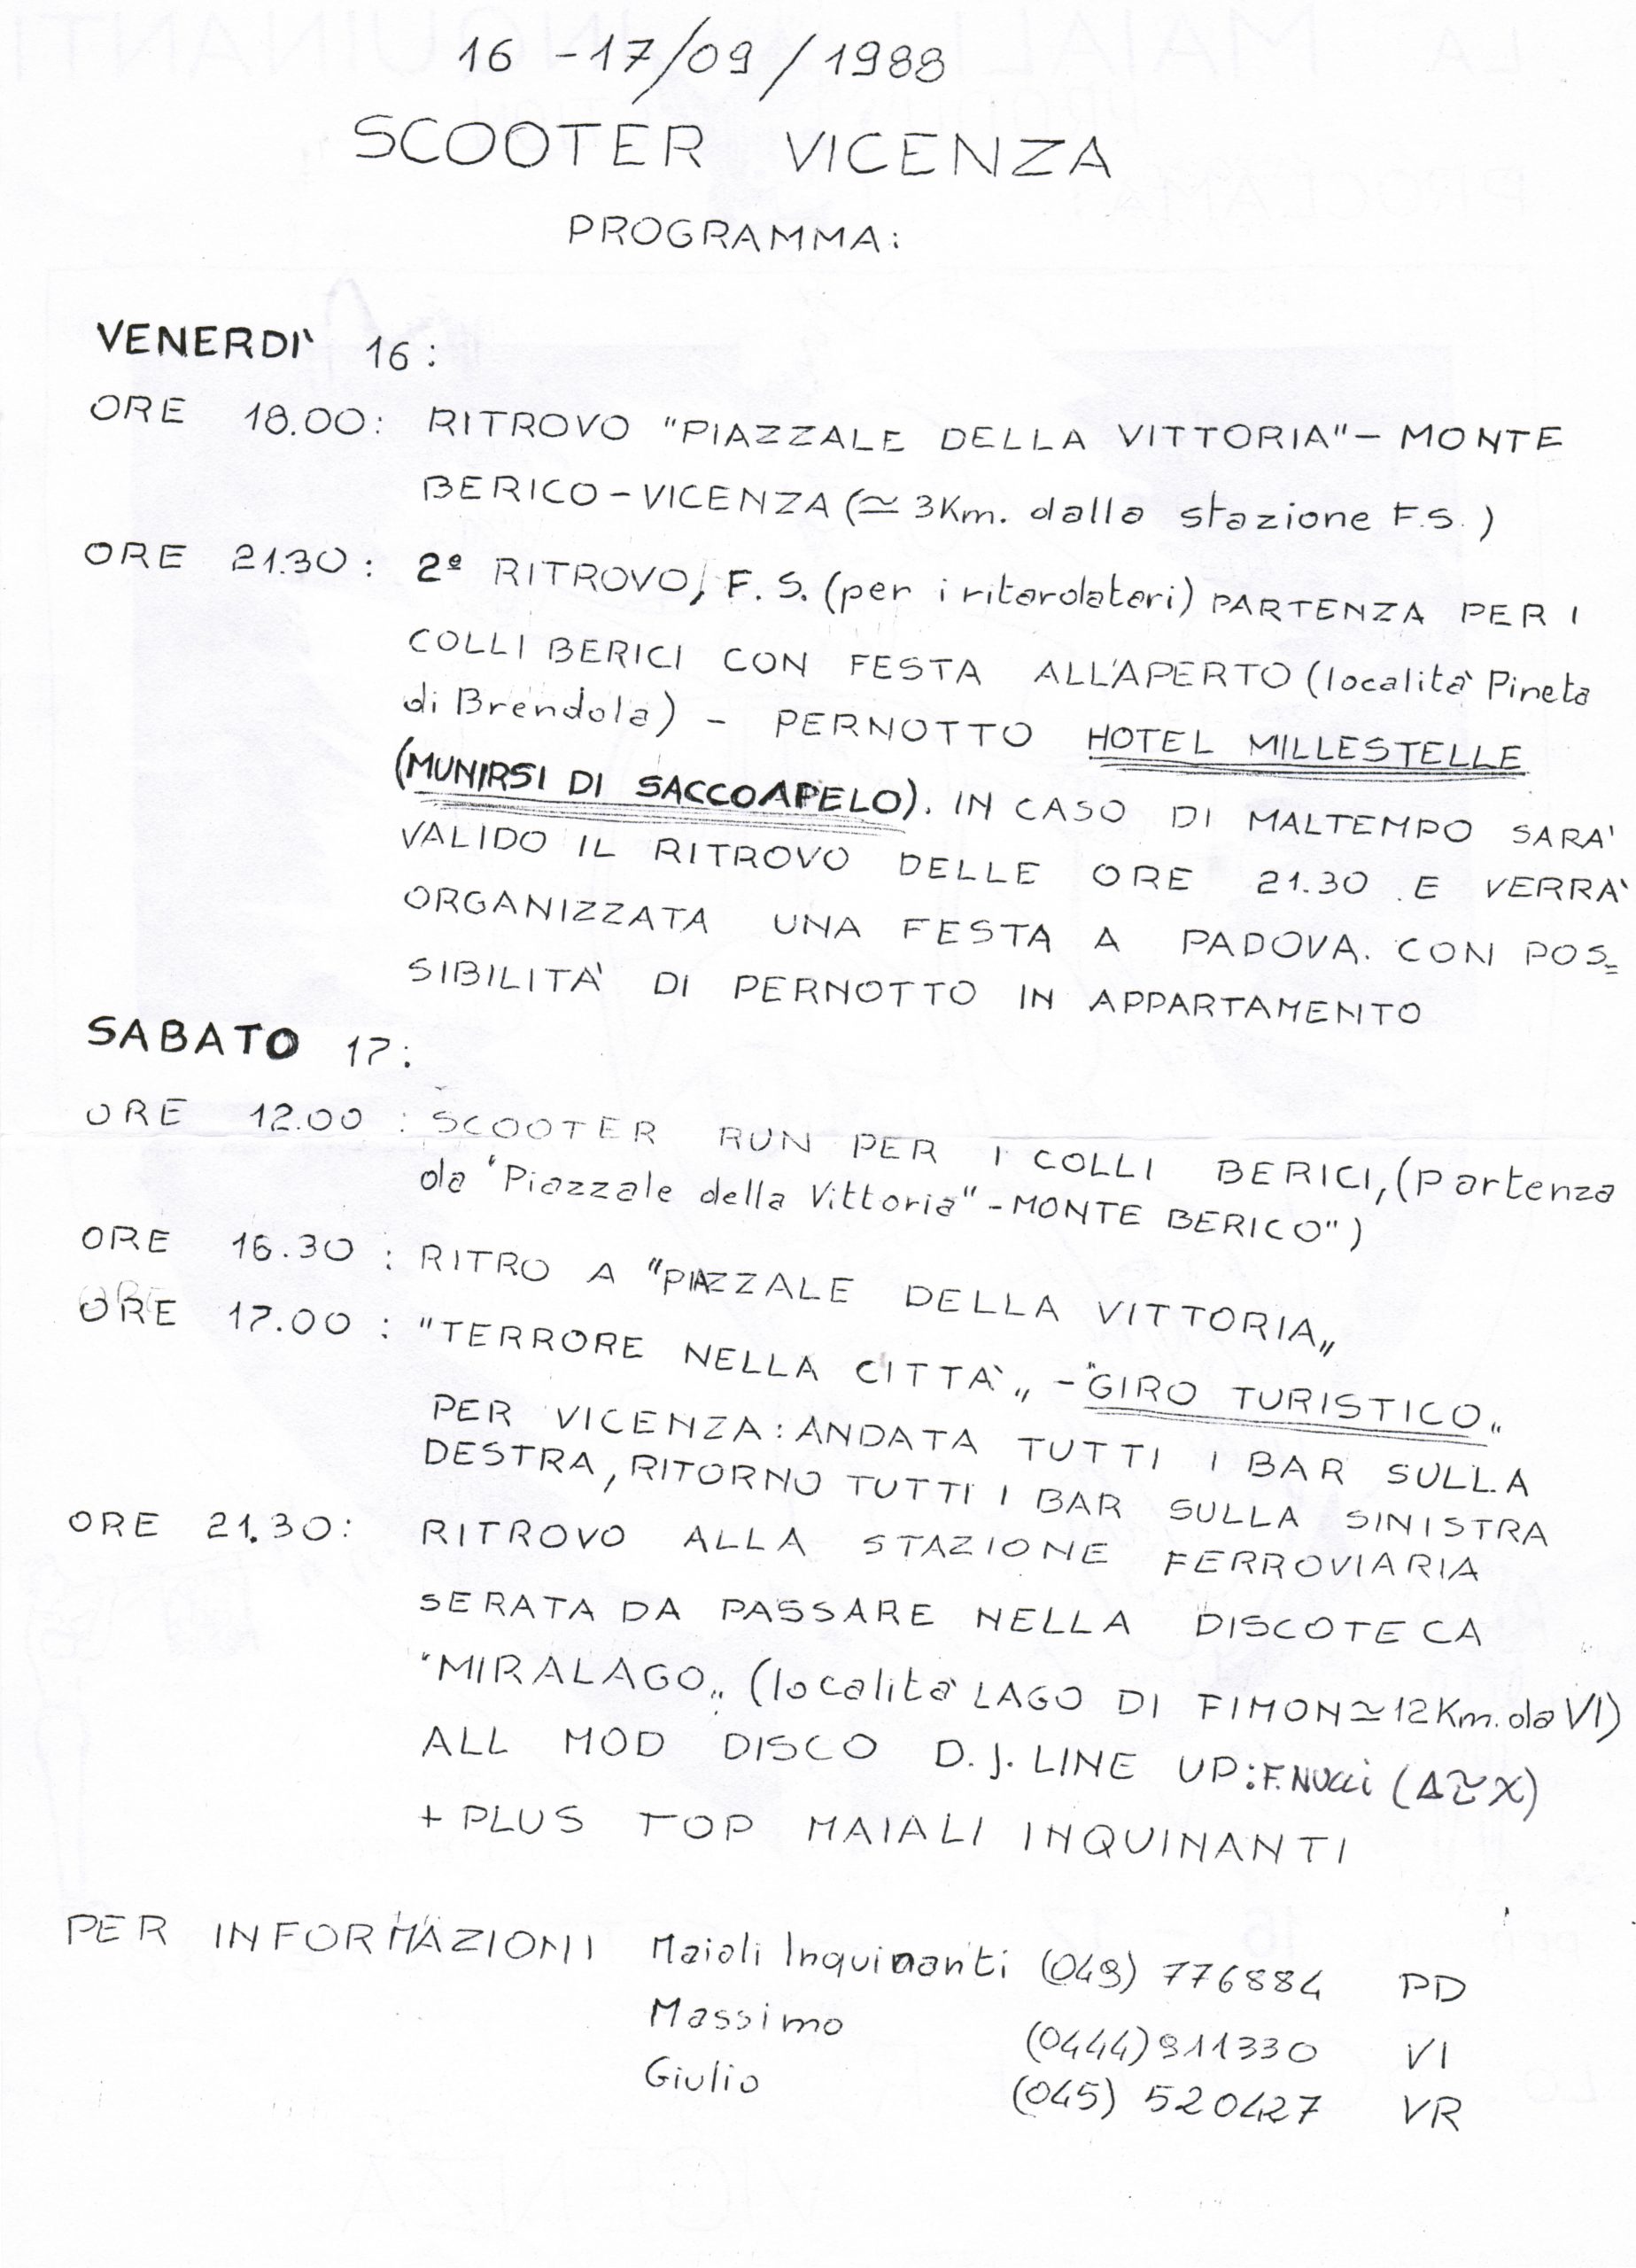 16 - 17/09/1988
SCOOTER VICENZA
PROGRAMMA:
VENERDI' 16:
ORE 18.00: RITROVO "PIAZZALE DELLA VITTORIA" - MONTE
BERICO - VICENZA (≃ 3Km. dalla stazione F.S.)
ORE 21.30: 2º RITROVO, F.S. (per i ritardatari) PARTENZA PER I
COLLI BERICI CON FESTA ALL'APERTO (localita' Pineta
di Brendola) - PERNOTTO HOTEL MILLESTELLE
(MUNIRSI DI SACCOAPELO). IN CASO DI MALTEMPO SARA'
VALIDO IL RITROVO DELLE ORE 21.30 E VERRA'
ORGANIZZATA UNA FESTA A PADOVA. CON POS=
SIBILITA' DI PERNOTTO IN APPARTAMENTO
SABATO 17:
ORE 12.00: SCOOTER RUN PER I COLLI BERICI, (partenza
da "Piazzale della Vittoria" - MONTE BERICO")
ORE 16.30: RITRO A "PIAZZALE DELLA VITTORIA„
ORE 17.00: "TERRORE NELLA CITTA'„ - "GIRO TURISTICO„
PER VICENZA: ANDATA TUTTI I BAR SULLA
DESTRA, RITORNO TUTTI I BAR SULLA SINISTRA
ORE 21.30: RITROVO ALLA STAZIONE FERROVIARIA
SERATA DA PASSARE NELLA DISCOTECA
"MIRALAGO„ (localita' LAGO DI FIMON ≃ 12Km. da VI)
ALL MOD DISCO D.J. LINE UP: F. NUCCi
+ PLUS TOP MAIALI INQUINANTI
PER INFORMAZIONI Maiali Inquinanti (049) 776884 PD
Massimo (0444) 911330 VI
Giulio (045) 520427 VR